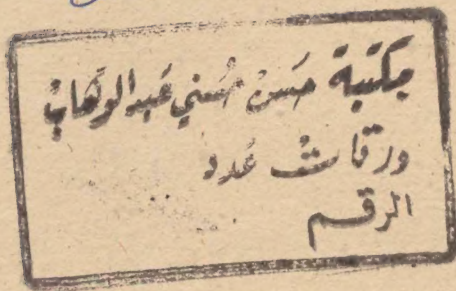 مكتبة حَسَن حُسني عَبد الوَهاب
ورقات عَدد
الرقم